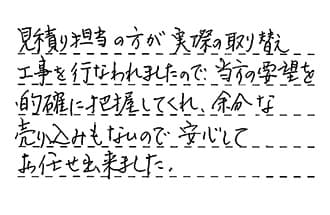 見積り担当の方が実際の取り替え
工事を行なわれましたので、当方の要望を
的確に把握してくれ、余分な
売り込みもないので安心して
お任せ出来ました。